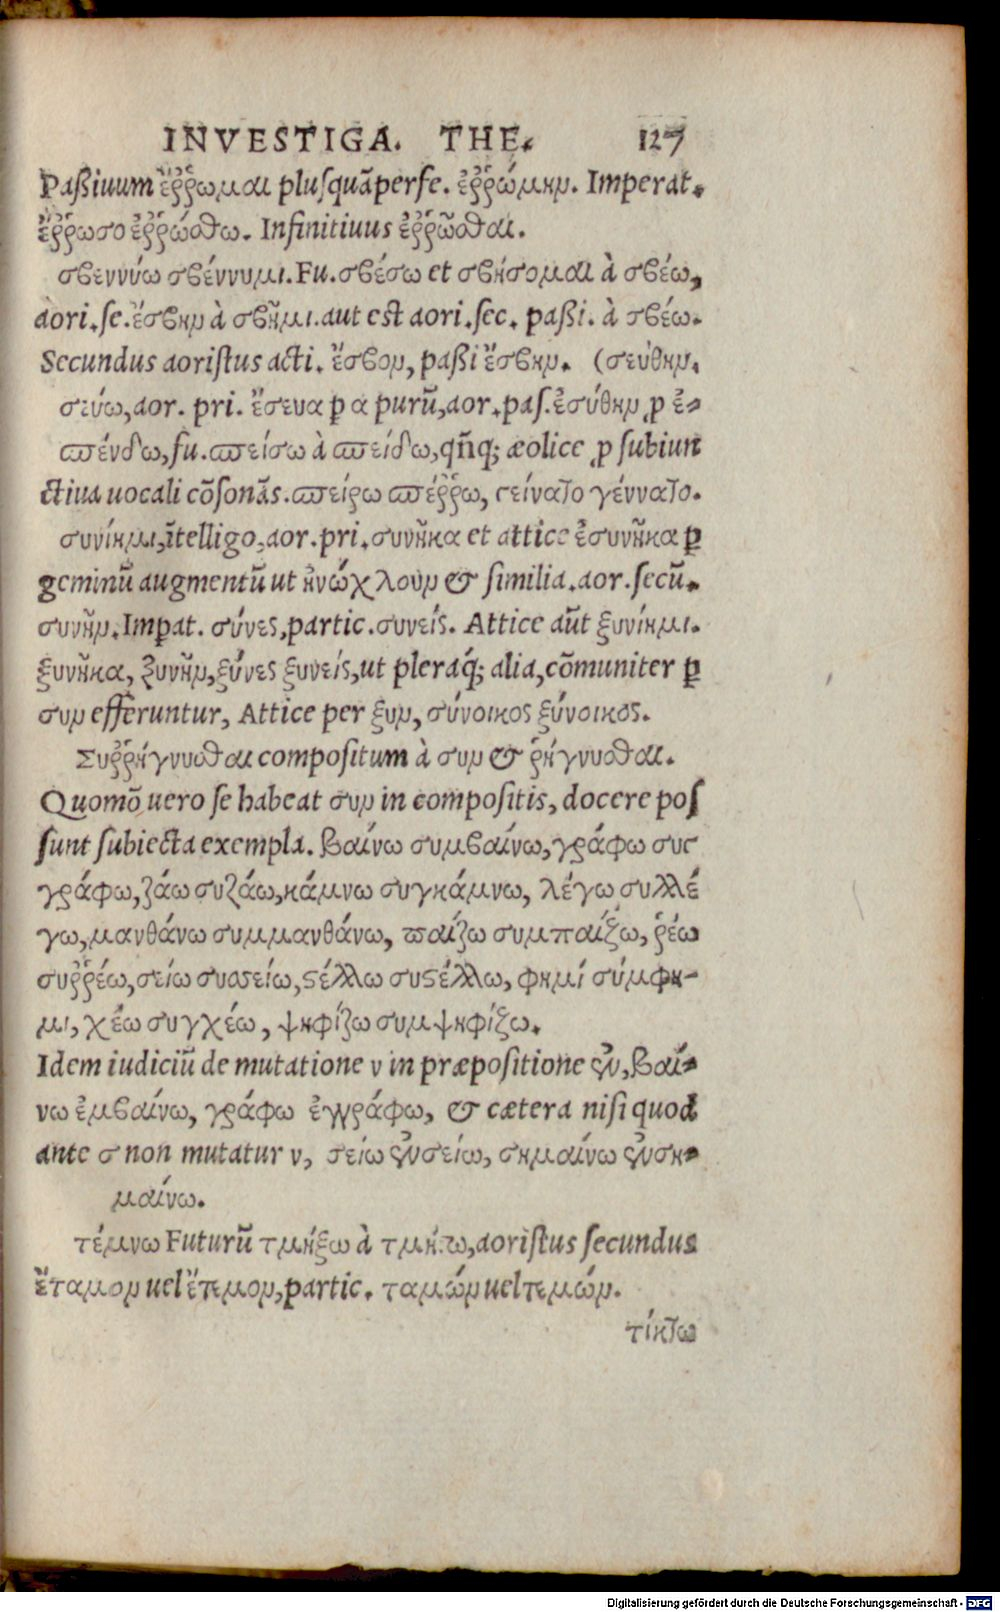 INVESTIGA. THE. 127
Paßiuum ἔῤῥωμαι plusquāperfe. ἐῤῥώμην. Imperat.
ἔῤῥωσο ἐῤῥώσθω. Infinitiuus ἐῤῥῶσθαι.
σβεννύω σβέννυμι. Fu. σβέσω et σβήσομαι à σβέω,
aori. se. ἔσβην à σβῆμι. aut est aori. sec. paßi. à σβέω.
Secundus aoristus acti. ἔσβον, paßi ἔσβην. (σεύθην.
σεύω, aor. pri. ἔσευα ꝑ α purū, aor. pas. ἐσύθην ꝓ ἐ-
σπένδω, fu. σπείσω à σπείδω, qñq; æolice ꝓ subiun
ctiua uocali cōsonās. σπείρω σπέῤῥω, γείνατο γέννατο.
συνίημι, ītelligo, aor. pri. συνῆκα et attice ἐσυνῆκα ꝑ
geminū augmentū ut ἠνώχλουν & similia. aor. secū.
συνῆν. Imꝑat. σύνες, partic. συνείς. Attice aūt ξυνίημι.
ξυνῆκα, ξυνῆν, ξύνες ξυνείς, ut pleraq́; alia, cōmuniter ꝑ
συν efferuntur, Attice per ξυν, σύνοικος ξύνοικος.
Συῤῥήγνυσθαι compositum à συν & ῥήγνυσθαι.
Quomō uero se habeat συν in compositis, docere pos
sunt subiecta exempla. βαίνω συμβαίνω, γράφω συγ
γράφω, ζάω συζάω, κάμνω συγκάμνω, λέγω συλλέ
γω, μανθάνω συμμανθάνω, παίζω συμπαίζω, ῥέω
συῤῥέω, σείω συσσείω, ςέλλω συςέλλω, φημί σύμφη-
μι, χέω συγχέω, ψηφίζω συμψηφίζω.
Idem iudiciū de mutatione ν in præpositione ἐν, βαί-
νω ἐμβαίνω, γράφω ἐγγράφω, & cætera nisi quod
ante σ non mutatur ν, σείω ἐνσείω, σημαίνω ἐνση-
μαίνω.
τέμνω Futurū τμήξω à τμήτω, aoristus secundus
ἔταμον uel ἔτεμον, partic. ταμών uel τεμών.
τίκτω
Digitalisierung gefördert durch die Deutsche Forschungsgemeinschaft - DFG